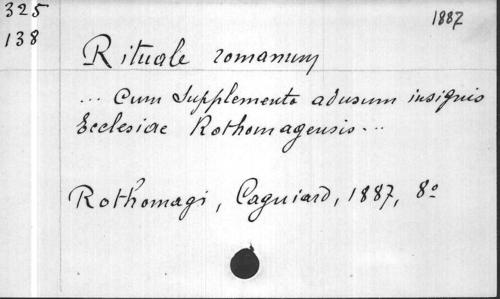 325
138
1887
Rituale romanum
... Cum Supplemento ad usum insignis
Ecclesiae Rothomagensis...
Rothomagi, Cagniard, 1887, 8o